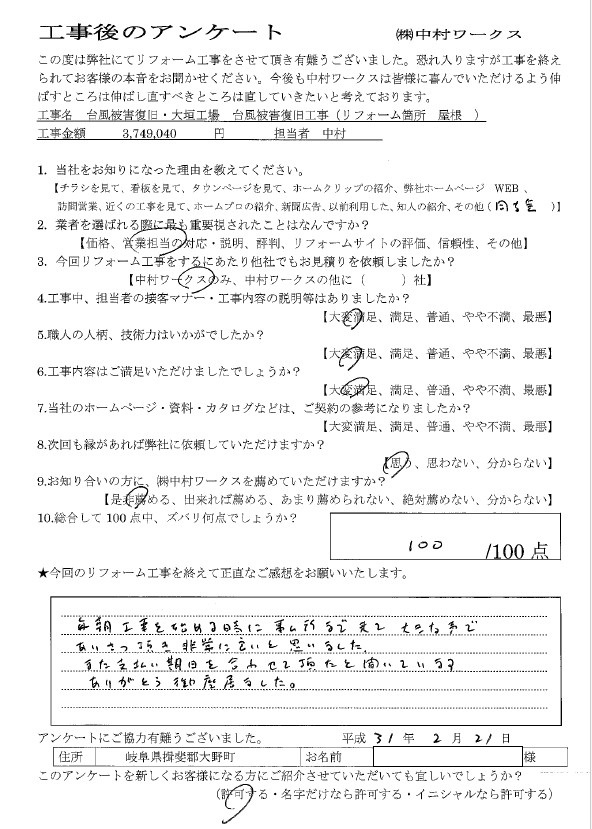 工事後のアンケート ㈱中村ワークス
この度は弊社にてリフォーム工事をさせて頂き有難うございました。恐れ入りますが工事を終え
られてお客様の本音をお聞かせください。今後も中村ワークスは皆様に喜んでいただけるよう伸
ばすところは伸ばし直すべきところは直していきたいと考えております。
工事名 台風被害復旧・大垣工場 台風被害復旧工事（リフォーム箇所 屋根 ）
工事金額 3,749,040 円 担当者 中村
1. 当社をお知りになった理由を教えてください。
【チラシを見て、看板を見て、タウンページを見て、ホームクリップの紹介、弊社ホームページ WEB 、
訪問営業、近くの工事を見て、ホームプロの紹介、新聞広告、以前利用した、知人の紹介、その他（ ）】
2. 業者を選ばれる際に最も重要視されたことはなんですか？
【価格、営業担当の対応・説明、評判、リフォームサイトの評価、信頼性、その他】
3. 今回リフォーム工事をするにあたり他社でもお見積りを依頼しましたか？
【中村ワークスのみ、中村ワークスの他に（ ）社】
4.工事中、担当者の接客マナー・工事内容の説明等はありましたか？
【大変満足、満足、普通、やや不満、最悪】
5.職人の人柄、技術力はいかがでしたか？
【大変満足、満足、普通、やや不満、最悪】
6.工事内容はご満足いただけましたでしょうか？
【大変満足、満足、普通、やや不満、最悪】
7.当社のホームページ・資料・カタログなどは、ご契約の参考になりましたか？
【大変満足、満足、普通、やや不満、最悪】
8.次回も縁があれば弊社に依頼していただけますか？
【思う、思わない、分からない】
9.お知り合いの方に、㈱中村ワークスを薦めていただけますか？
【是非薦める、出来れば薦める、あまり薦められない、絶対薦めない、分からない】
10.総合して 100 点中、ズバリ何点でしょうか？
100 /100 点
★今回のリフォーム工事を終えて正直なご感想をお願いいたします。
毎朝工事を始める時に事ム所まで来て 大きな声で
あいさつ頂き非常に良いと思いました。
また支払い期日を合わせて頂たと聞いています
ありがとう御座居ました。
アンケートにご協力有難うございました。 平成 31 年 2 月 21 日
住所 岐阜県揖斐郡大野町 お名前 様
このアンケートを新しくお客様になる方にご紹介させていただいても宜しいでしょうか？
（許可する・名字だけなら許可する・イニシャルなら許可する）